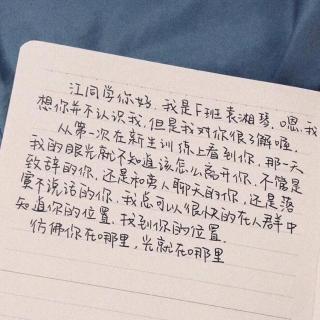 江同学你好,我是F班袁湘琴。嗯,我
想你并不认识我,但是我对你很了解喔,
从第一次在新生训练上看到你,那一天
我的眼光就不知道该怎么离开你,不管是
致辞的你,还是和旁人聊天的你,还是落
寞不说话的你,我总可以很快的在人群中
知道你的位置,找到你的位置.
仿佛你在哪里,光就在哪里